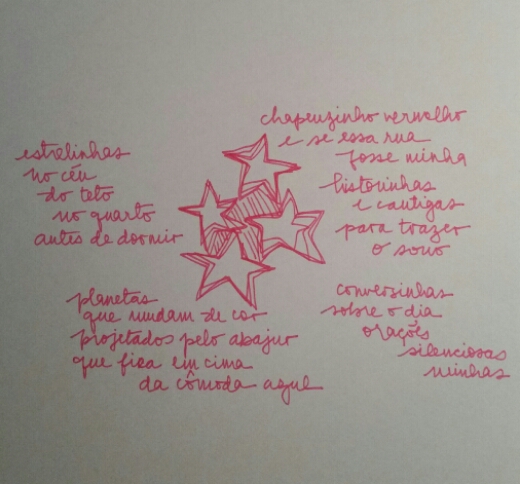 estrelinhas
no céu
do teto
no quarto
antes de dormir
chapeuzinho vermelho
e se essa rua
fosse minha
historinhas
e cantigas
para trazer
o sono
planetas
que mudam de cor
projetados pelo abajur
que fica em cima
da cômoda azul
conversinhas
sobre o dia
orações
silenciosas
minhas